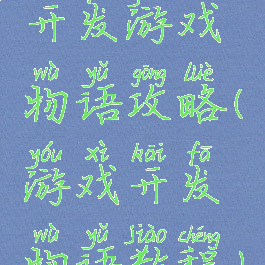 开发游戏
wù yǔ gōng lüè
物语攻略(
yóu xì kāi fā
游戏开发
wù yǔ jiào chéng
物语教程)